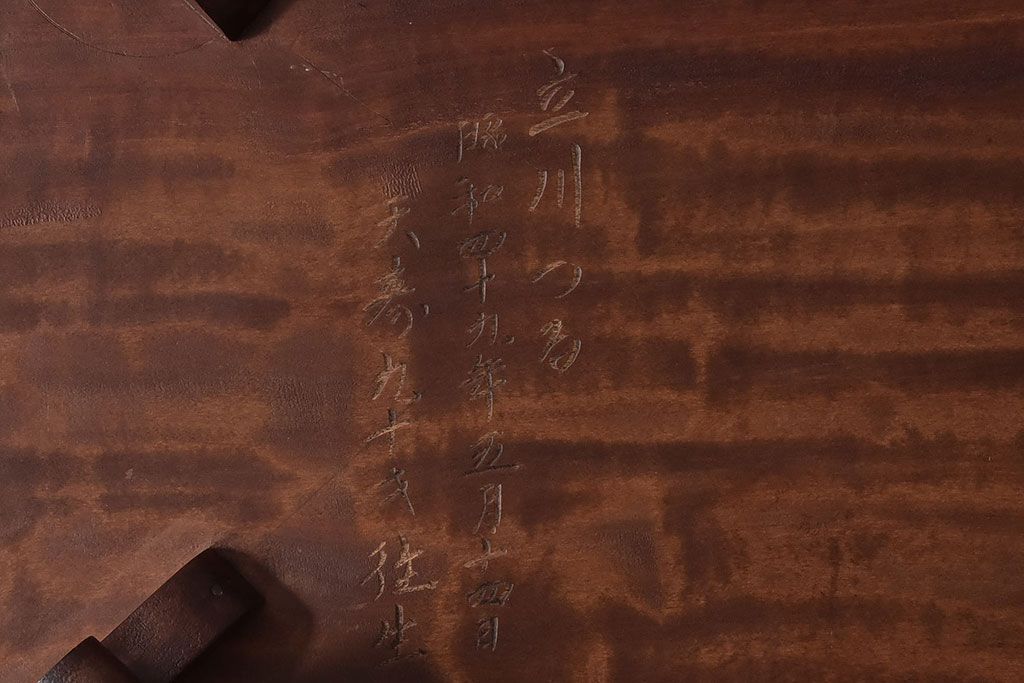 立川つる
昭和四十九年五月十四日
天寿九十才往生